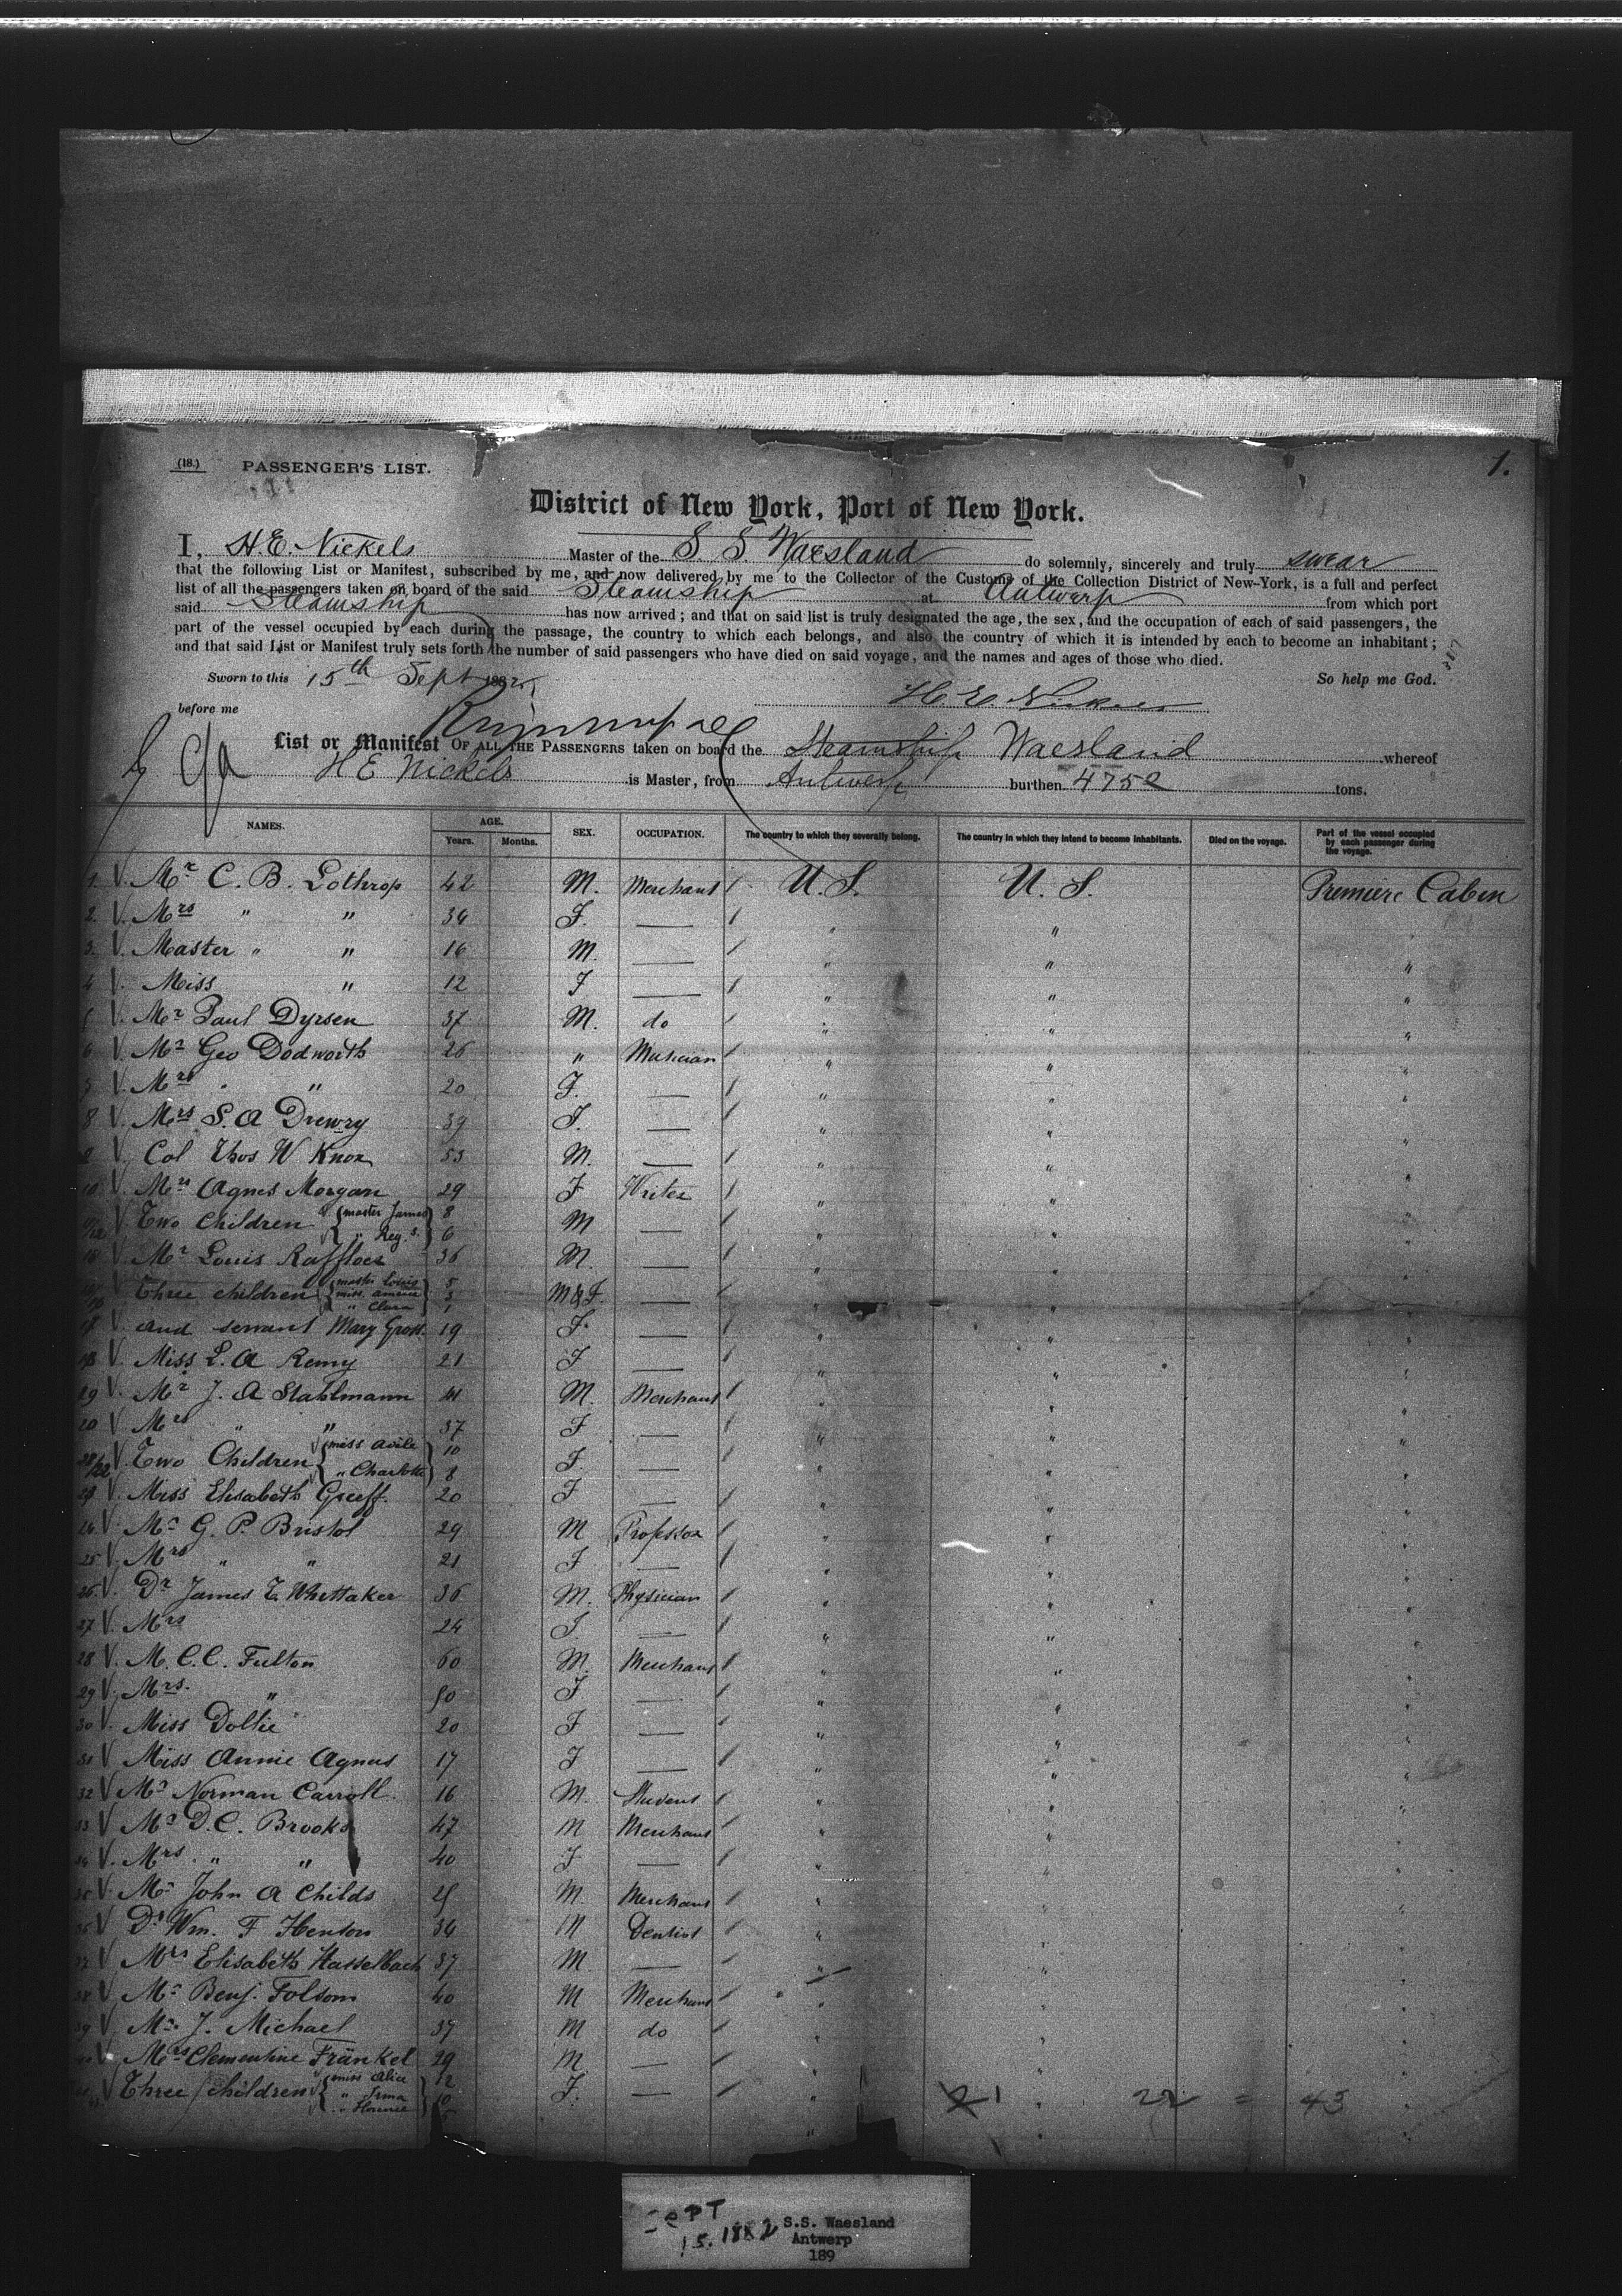 (18.) PASSENGER'S LIST. 1.
District of New York, Port of New York.
I, H.E. Nickels Master of the S. S. Waesland do solemnly, sincerely and truly swear
that the following List or Manifest, subscribed by me, and now delivered by me to the Collector of the Customs of the Collection District of New-York, is a full and perfect
list of all the passengers taken on board of the said Steamship at Antwerp from which port
said Steamship has now arrived; and that on said list is truly designated the age, the sex, and the occupation of each of said passengers, the
part of the vessel occupied by each during the passage, the country to which each belongs, and also the country of which it is intended by each to become an inhabitant;
and that said List or Manifest truly sets forth the number of said passengers who have died on said voyage, and the names and ages of those who died.
Sworn to this 15th Sept 1882 So help me God.
H. E. Nickels
before me
List or Manifest OF ALL THE PASSENGERS taken on board the Steamship Waesland whereof
H E Nickels is Master, from Antwerp burthen 4752 tons.
NAMES. AGE. Years. Months. SEX. OCCUPATION. The country to which they severally belong. The country in which they intend to become inhabitants. Died on the voyage. Part of the vessel occupied by each passenger during the voyage.
1. V. Mr C. B. Lothrop 42 M. Merchant / U. S. U. S. Premiere Cabin
2. V. Mrs " " 34 F. — / " " "
3. V. Master " " 16 M. — / " " "
4 V. Miss " 12 F — / " " "
5 V. Mr Paul Dyrsen 37 M. do / " " "
6 V. Mr Geo Dodworth 26 " Musician / " " "
7 V. Mrs " " 20 F. — / " " "
8 V. Mrs S. A Drewry 39 F. — / " " "
9 V. Col Thos W Knox 53 M. — / " " "
10 V. Mrs Agnes Morgan 29 F Writer / " " "
11/12 V Two Children { master James 8 M — " " "
" Reg. S. } 6
V. Mr Louis Raffloer 36 M. — / " " "
V Three children { master Louis 5 M & F. — " " "
miss. Amelie 3
" Clara } 1
V and servant Mary Gross. 19 F. — / " " "
18 V. Miss L. A Remy 21 F — / " " "
19 V. Mr J. A Stahlmann 41 M. Merchant / " " "
20 V Mrs " " 37 F — / " " "
21/22 V. Two Children { miss 10 F. — / " " "
" Charlotte } 8
23 V. Miss Elisabeth Greeff. 20 F — / " " "
24 V. Mr G. P. Bristol 29 M Professor / " " "
25 V. Mrs " " 21 F — / " " "
26 V. Dr James T. Whittaker 36 M. Physician / " " "
27 V. Mrs 24 F. — / " " "
28 V. M. C. C. Fulton 60 M. Merchant / " " "
29 V. Mrs. " 50 F — / " " "
30 V. Miss Dollie 20 F — / " " "
31 V Miss Annie Agnus 17 F — / " " "
32 V Mr Norman Carroll 16 M. Student / " " "
33 V Mr D. C. Brooks 47 M Merchant / " " "
34 V. Mrs " " 40 F — / " " "
35 V. Mr John A Childs 25 M Merchant / " " "
36 V Dr Wm. F Henson 34 M Dentist / " " "
37 V Mrs Elisabeth Hasselbach 37 M — " " "
38 V Mr Benj. Folsom 40 M Merchant / " " "
39 V. Mr. J. Michael 37 M do / " " "
40 V Mrs Clementine Fränkel 29 M — / " " "
V Three children { miss Alice 12 F. — / " " "
" Irma 10
" }
21 22 = 43
SEPT
15. 1882 S.S. Waesland
Antwerp
189